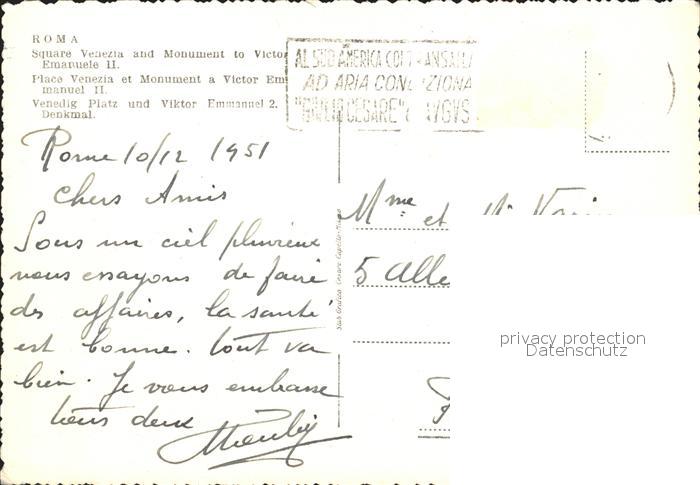 ROMA
Square Venezia and Monument to Victor
Emanuele II.
Place Venezia et Monument a Victor Em
manuel II.
Venedig Platz und Viktor Emmanuel 2.
Denkmal.
AL SUD AMERICA COI TRANSATLA
AD ARIA CONDIZIONA
"GIULIO CESARE" E AVGVS
Rome 10/12 1951
Chers Amis
Sous un ciel pluvieux
nous essayons de faire
des affaires, la santé
est bonne. tout va
bien. Je vous embrasse
tous deux
Mme et M.
5 Alle
privacy protection
Datenschutz